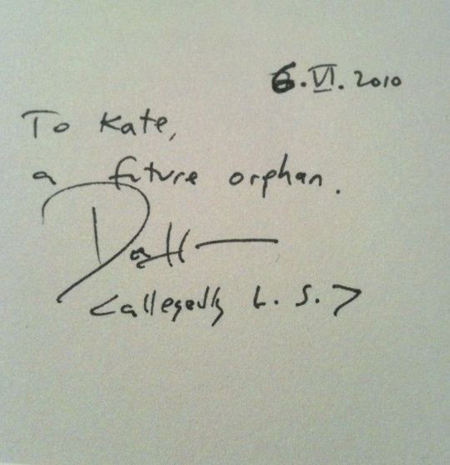 6.VI.2010
To Kate,
a future orphan.
<allegedly L. S.>